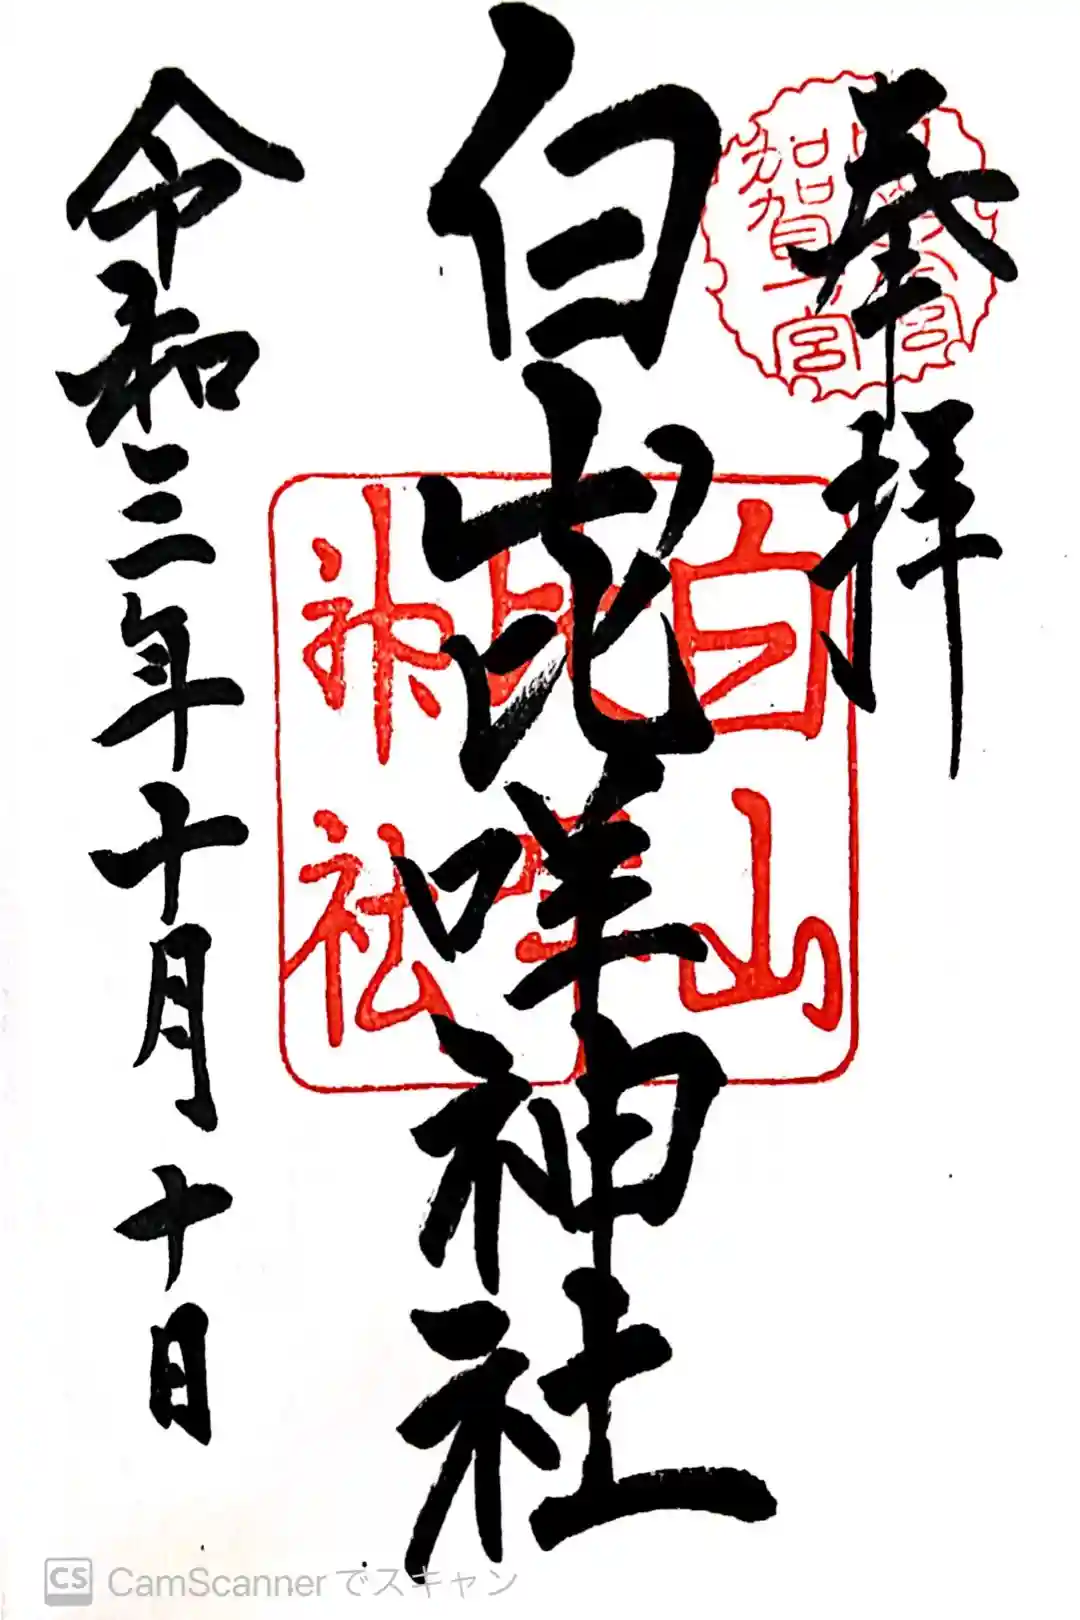 奉拝
白山比咩神社
令和三年十月十日
加賀一宮
白山
比咩
神社
CS CamScannerでスキャン